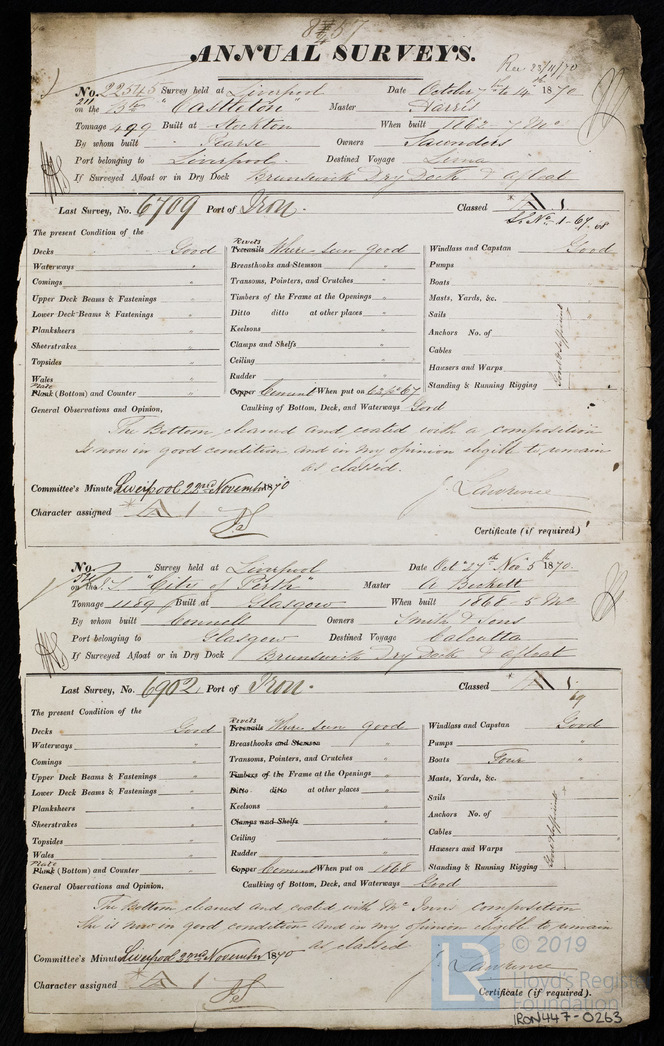 ANNUAL SURVEYS.
Rec 23/11/70
No. 22545 Survey held at Liverpool Date October 7th & 14th 1870
on the Bk "Castleton" Master Harris
Tonnage 499 Built at Stockton When built 1862 - 7 Mo
By whom built Pearse Owners Saunders
Port belonging to Liverpool Destined Voyage Lima
If Surveyed Afloat or in Dry Dock Brunswick Dry Dock & afloat
Last Survey, No. 6709 Port of Iron. Classed A 1
S.S. No 1 - 67
The present Condition of the
Decks Good Rivets Treenails Where seen good Windlass and Capstan Good
Waterways " Breasthooks and Stemson " Pumps "
Comings " Transoms, Pointers, and Crutches " Boats "
Upper Deck Beams & Fastenings " Timbers of the Frame at the Openings " Masts, Yards, &c. "
Lower Deck Beams & Fastenings " Ditto ditto at other places " Sails
Planksheers " Keelsons " Anchors No. of
Sheerstrakes " Clamps and Shelfs " Cables
Topsides " Ceiling " Hawsers and Warps
Wales " Rudder " Standing & Running Rigging
Plate Plank (Bottom) and Counter " Copper Cement When put on 62, pt 67
Good & sufficient
General Observations and Opinion, Caulking of Bottom, Deck, and Waterways Good
The Bottom cleaned and coated with a composition
Is now in good condition and in my opinion eligible to remain
as classed.
Committee's Minute Liverpool 22nd November 1870 J. Lawrence
Character assigned A 1
Certificate (if required)
No. Survey held at Liverpool Date Oct 27th Nov 5th 1870
on the "City of Perth" Master A Beckett
Tonnage 1189 Built at Glasgow When built 1868 - 5 Mo
By whom built Connell Owners Smith & Sons
Port belonging to Glasgow Destined Voyage Calcutta
If Surveyed Afloat or in Dry Dock Brunswick Dry Dock & afloat
Last Survey, No. 6902 Port of Iron. Classed A 1
69
The present Condition of the
Decks Good Rivets Treenails Where seen good Windlass and Capstan Good
Waterways " Breasthooks and Stemson " Pumps "
Comings " Transoms, Pointers, and Crutches " Boats Four "
Upper Deck Beams & Fastenings " Timbers of the Frame at the Openings " Masts, Yards, &c. "
Lower Deck Beams & Fastenings " Ditto ditto at other places " Sails
Planksheers " Keelsons " Anchors No. of
Sheerstrakes " Clamps and Shelfs Cables
Topsides " Ceiling " Hawsers and Warps
Wales " Rudder " Standing & Running Rigging
Plate Plank (Bottom) and Counter " Copper Cement When put on 1868
Good & sufficient
General Observations and Opinion, Caulking of Bottom, Deck, and Waterways Good
The Bottom cleaned and coated with Mc Inns composition
She is now in good condition and in my opinion eligible to remain
as classed
Committee's Minute Liverpool 22nd November 1870 J. Lawrence
Character assigned A 1
Certificate (if required).
© 2019
LR
Lloyd's Register
Foundation
IRON447-0263